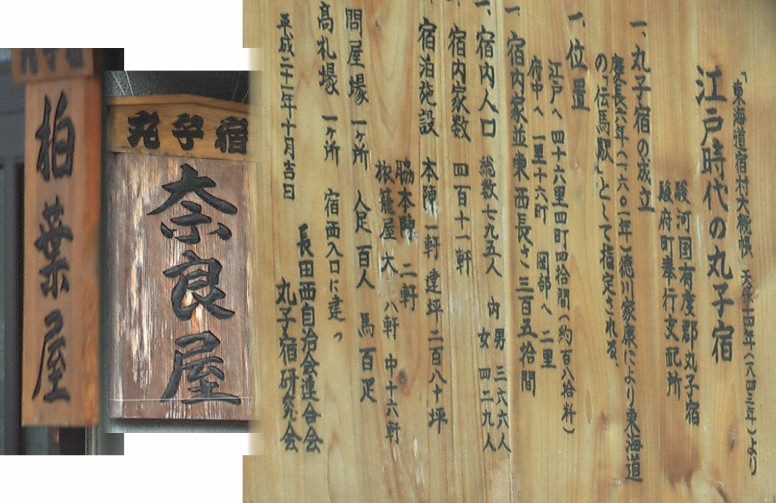 「東海道宿村大概帳 天保十四年(一八四三年)より
江戸時代の丸子宿
駿河国有度郡丸子宿
駿府町奉行支配所
一、丸子宿の成立
慶長六年(一六〇一年)徳川家康により東海道
の「伝馬駅」として指定される。
一、位置
江戸へ 四十六里四町四拾間(約百八拾粁)
府中へ 一里十六町 岡部へ 二里
一、宿内家並東西長さ三百五拾間
一、宿内人口 総数七九五人 内 男 三六六人
女 四二九人
宿内家数 四百十一軒
宿泊施設 本陣 一軒 建坪 二百八十坪
脇本陣 二軒
旅籠屋 大 八軒 中十六軒
問屋場 一ヶ所 人足 百人 馬 百疋
高札場 一ヶ所 宿西入口に建つ
平成二十一年十月吉日
長田西自治会連合会
丸子宿研究会
丸子宿
奈良屋
丸子宿
柏葉屋